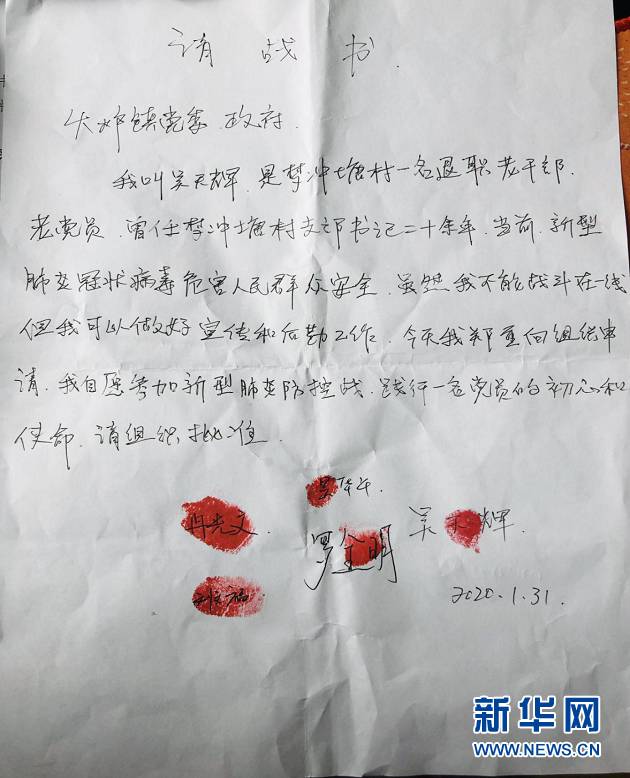 请战书.
大邓镇党委、政府.
我叫吴天辉,是梦冲塘村一名退职老干部.
老党员.曾任梦冲塘村支部书记二十余年.当前.新型
肺炎冠状病毒危害人民群众安全.虽然我不能战斗在一线
但我可以做好宣传和后勤工作.今天我郑重向组织申
请.我自愿参加新型肺炎防控战.践行一名党员的初心和
使命.请组织批准.
罗金明
吴天辉.
2020.1.31.
新华网
WWW.NEWS.CN